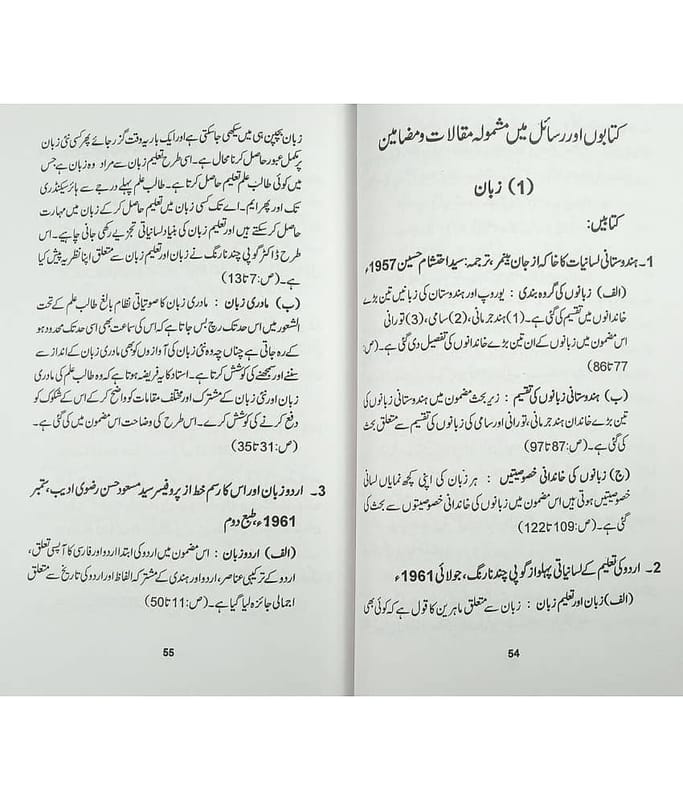 کتابوں اور رسائل میں مشمولہ مقالات و مضامین
(1) زبان
کتابیں:
1۔ ہندوستانی لسانیات کا خاکہ از جان بیمز، ترجمہ: سید احتشام حسین 1957ء
(الف) زبانوں کی گروہ بندی : یوروپ اور ہندوستان کی زبانیں تین بڑے
خاندانوں میں تقسیم کی گئی ہے۔ (1) ہند جرمانی، (2) سامی، (3) تورانی
اس مضمون میں زبانوں کے ان تین بڑے خاندانوں کی تفصیل دی گئی ہے۔ (ص:
77 تا 86)
(ب) ہندوستانی زبانوں کی تقسیم : زیر بحث مضمون میں ہندوستانی زبانوں کی
تین بڑے خاندان ہند جرمانی، تورانی اور سامی کی زبانوں کی تقسیم سے متعلق بحث
کی گئی ہے۔ (ص: 87 تا 97)
(ج) زبانوں کی خاندانی خصوصیتیں : ہر زبان کی اپنی کچھ نمایاں لسانی
خصوصیتیں ہوتی ہیں اس مضمون میں زبانوں کی خاندانی خصوصیتوں سے بحث کی
گئی ہے۔ (ص: 109 تا 122)
2۔ اردو کی تعلیم کے لسانیاتی پہلو از گوپی چند نارنگ، جولائی 1961ء
(الف) زبان اور تعلیم زبان : زبان سے متعلق ماہرین کا قول ہے کہ کوئی بھی
54
زبان بچپن ہی میں سیکھی جا سکتی ہے اور ایک بار یہ وقت گزر جائے پھر کسی نئی زبان
پر مکمل عبور حاصل کرنا محال ہے۔ اسی طرح تعلیم زبان سے مراد وہ زبان ہے جس
میں کوئی طالب علم تعلیم حاصل کرتا ہے۔ طالب علم پہلے درجے سے ہائر سیکنڈری
تک اور پھر ایم۔ اے تک کسی زبان میں تعلیم حاصل کر کے زبان میں مہارت
حاصل کر سکتے ہیں اور تعلیم زبان کی بنیاد لسانیاتی تجزیے رکھی جانی چاہیے۔ اس
طرح ڈاکٹر گوپی چند نارنگ نے زبان اور تعلیم زبان سے متعلق اپنا نظریہ پیش کیا
ہے۔ (ص: 7 تا 13)
(ب) مادری زبان : مادری زبان کا صوتیاتی نظام بالغ طالب علم کے تحت
الشعور میں اس حد تک رچ بس جاتا ہے کہ اس کی سماعت بھی اسی حد تک محدود ہو
کے رہ جاتی ہے چناں چہ وہ نئی زبان کی آوازوں کو بھی مادری زبان کے انداز سے
سننے اور سمجھنے کی کوشش کرتا ہے۔ استاد کا یہ فریضہ ہوتا ہے کہ وہ طالب علم کی مادری
زبان اور نئی زبان کے مشترک اور مختلف مقامات کو واضح کر کے اس کے شکوک کو
دفع کرنے کی کوشش کرے۔ اس طرح کی وضاحت اس مضمون میں کی گئی ہے۔
(ص: 31 تا 35)
3۔ اردو زبان اور اس کا رسم خط از پروفیسر سید مسعود حسن رضوی ادیب، ستمبر
1961ء، طبع دوم
(الف) اردو زبان : اس مضمون میں اردو کی ابتدا اردو اور فارسی کا آپسی تعلق،
اردو کے ترکیبی عناصر، اردو اور ہندی کے مشترکہ الفاظ اور اردو کی تاریخ سے متعلق
اجمالی جائزہ لیا گیا ہے۔ (ص: 11 تا 50)
55